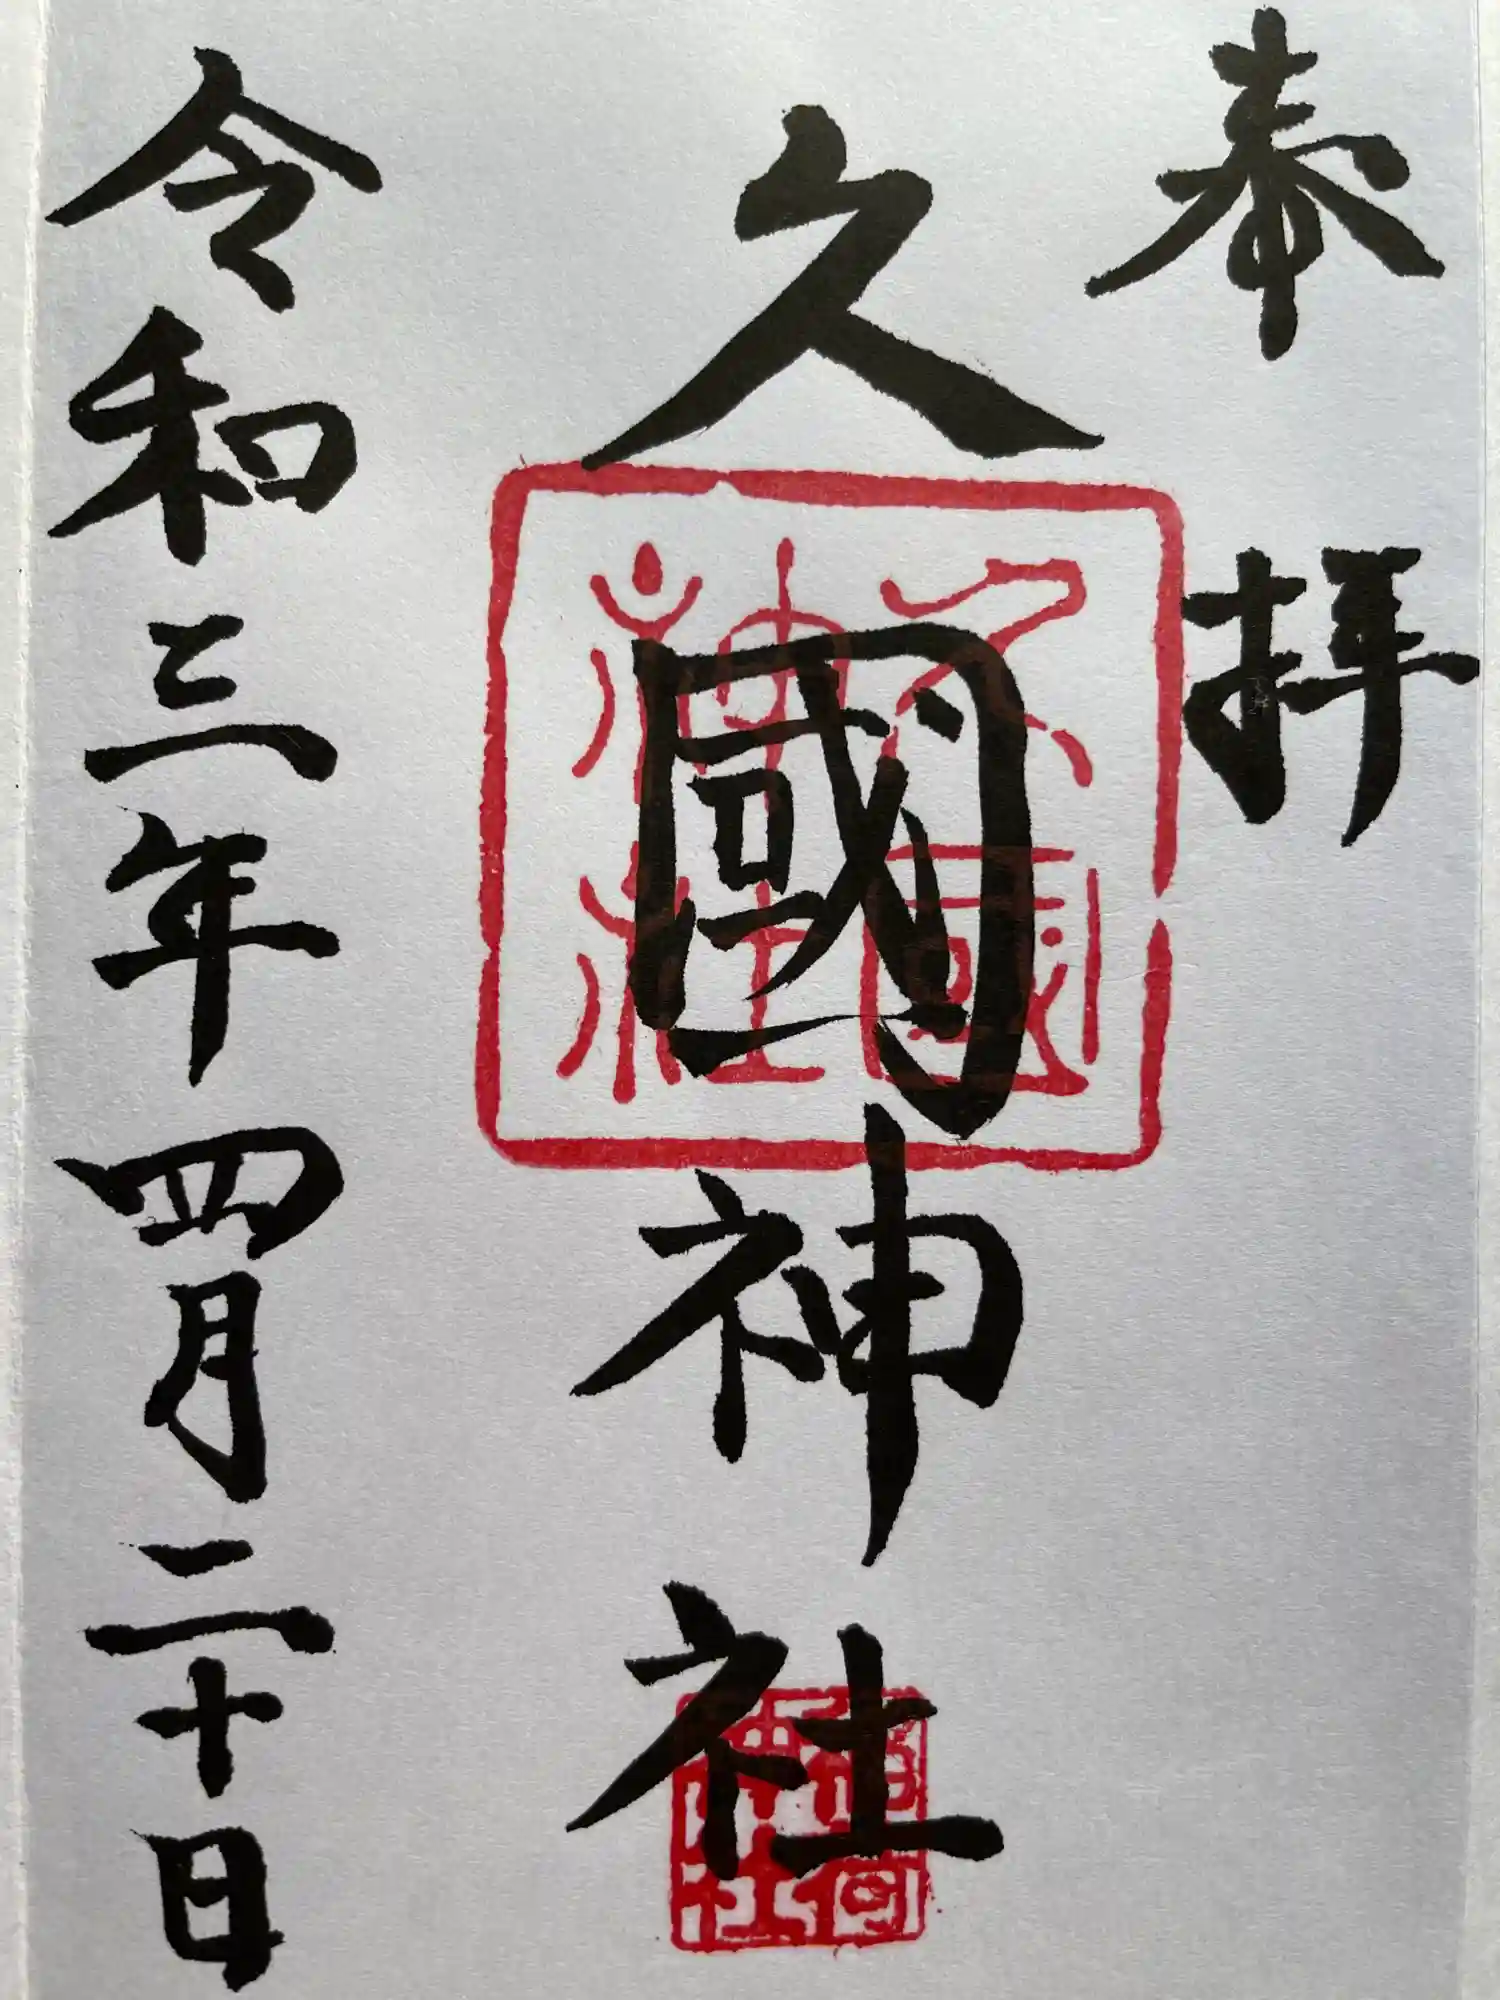 奉拝
久國神社
久國神社
稲荷神社
令和三年四月二十日